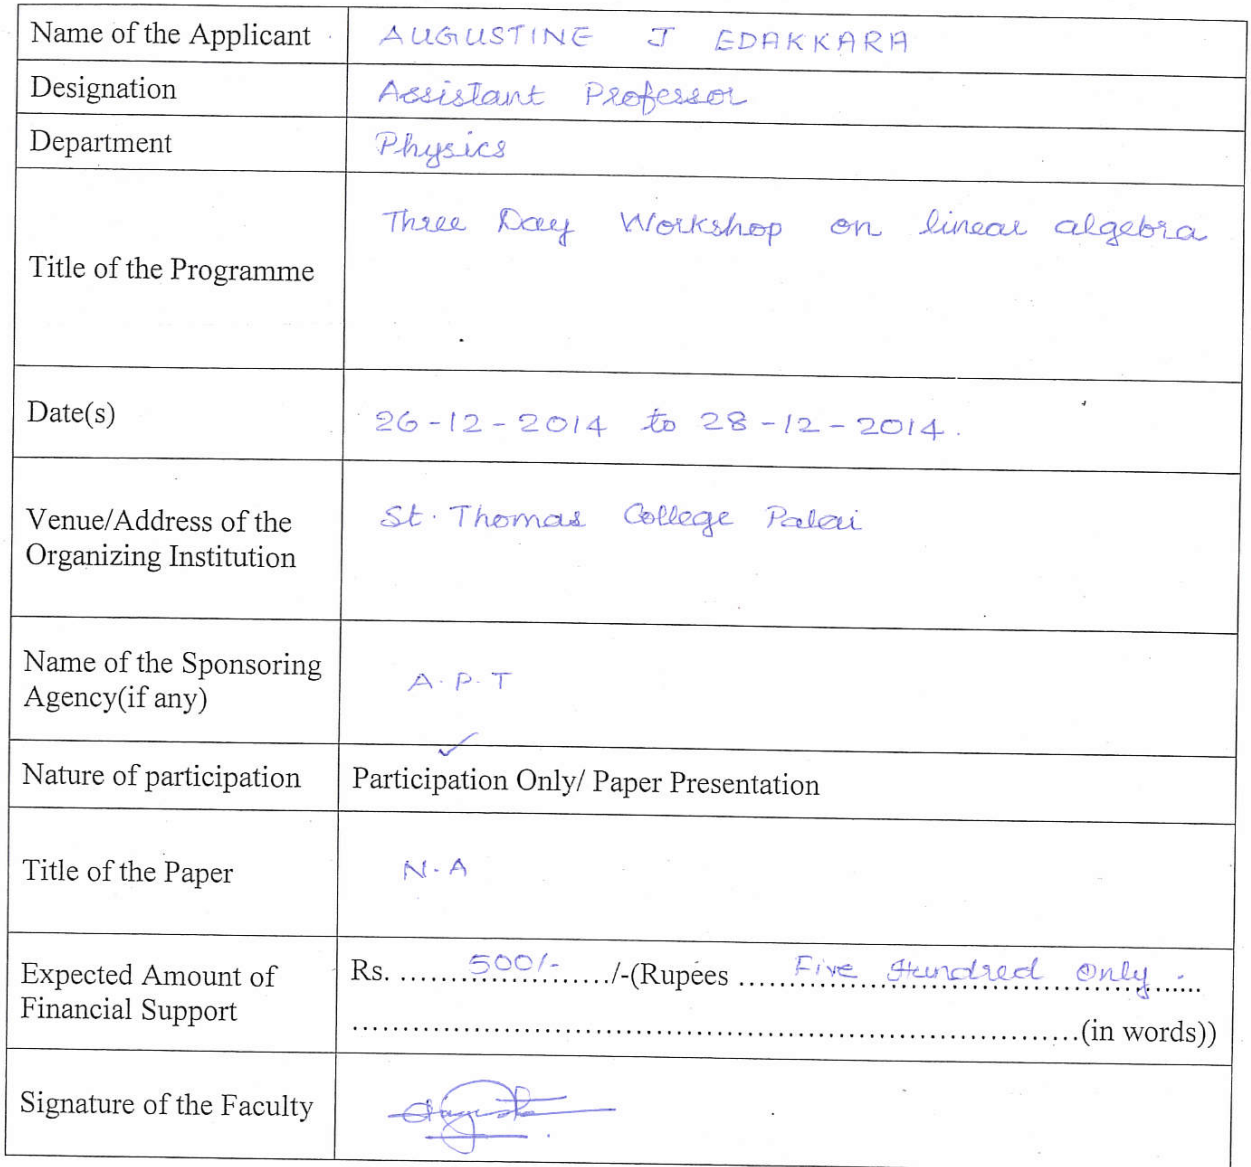 Name of the Applicant AUGUSTINE J EDAKKARA
Designation Assistant Professor
Department Physics
Title of the Programme Three Day Workshop on linear algebra
Date(s) 26-12-2014 to 28-12-2014.
Venue/Address of the
Organizing Institution
St. Thomas College Palai
Name of the Sponsoring
Agency(if any)
A.P.T
Nature of participation Participation Only/ Paper Presentation
Title of the Paper N.A
Expected Amount of
Financial Support
Rs. ......500/-....../-(Rupees ......Five Hundred Only.......
......................................................................(in words))
Signature of the Faculty